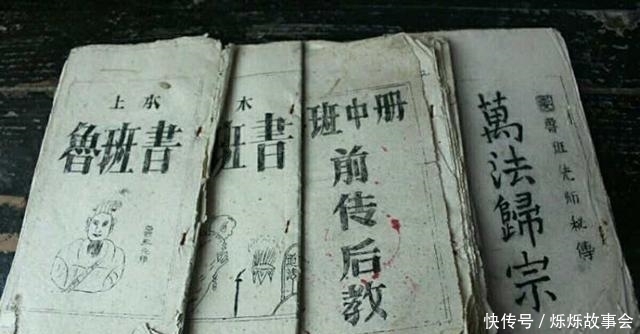 上本
魯班書
木
班書
班中册
前传后教
魯班先师秘傳
萬法歸宗
快传号 / 烁烁故事会